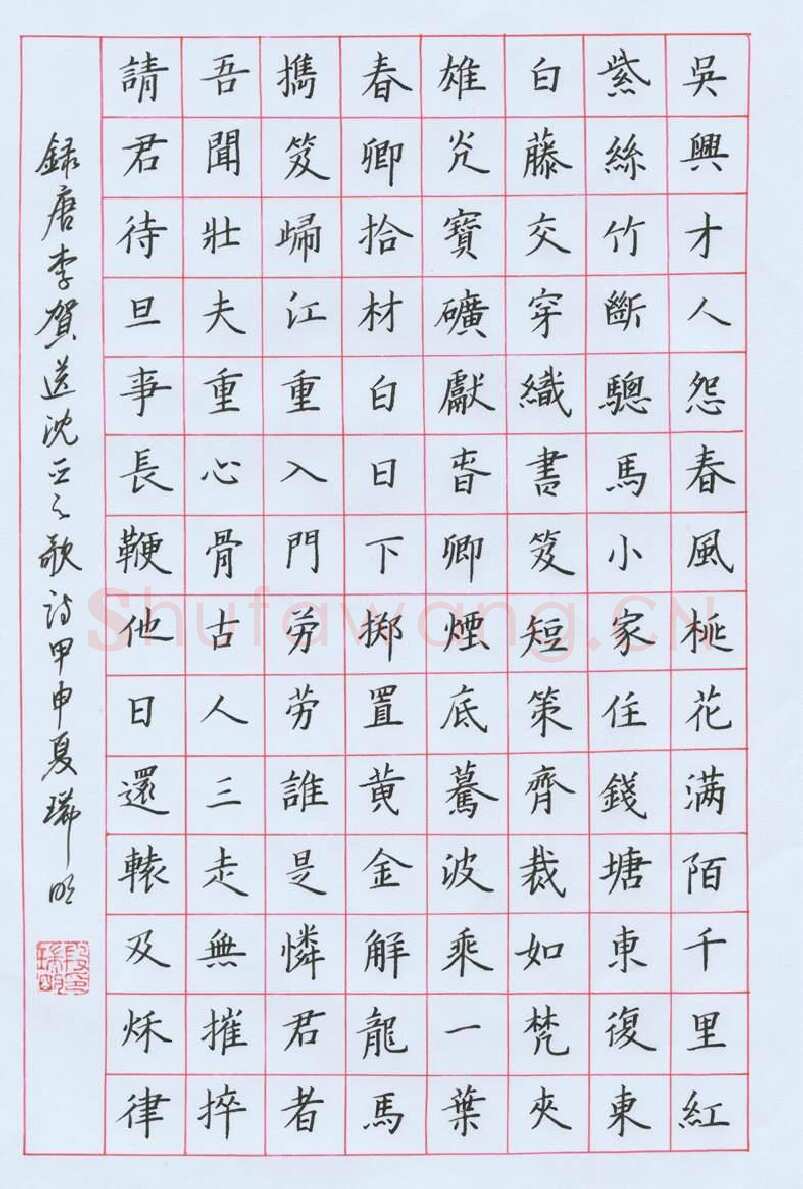 吳興才人怨春風桃花满陌千里紅
紫絲竹斷驄馬小家住錢塘東復東
白藤交穿織書笈短策齊裁如梵夾
雄光寶礦獻春卿煙底驀波乘一葉
春卿拾材白日下掷置黄金解龍馬
攜笈歸江重入門劳劳誰是憐君者
吾聞壯夫重心骨古人三走無摧捽
請君待旦事長鞭他日還轅及秌律
録唐李賀送沈亞之歌詩甲申夏瑞明
段印瑞明
Shufawang.CN